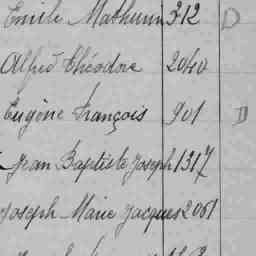 Emile Mathurin 312 D
Alfred Théodore 2040
Eugène François 901 D
Jean Baptiste Joseph 1317
Joseph Marie Jacques 2061